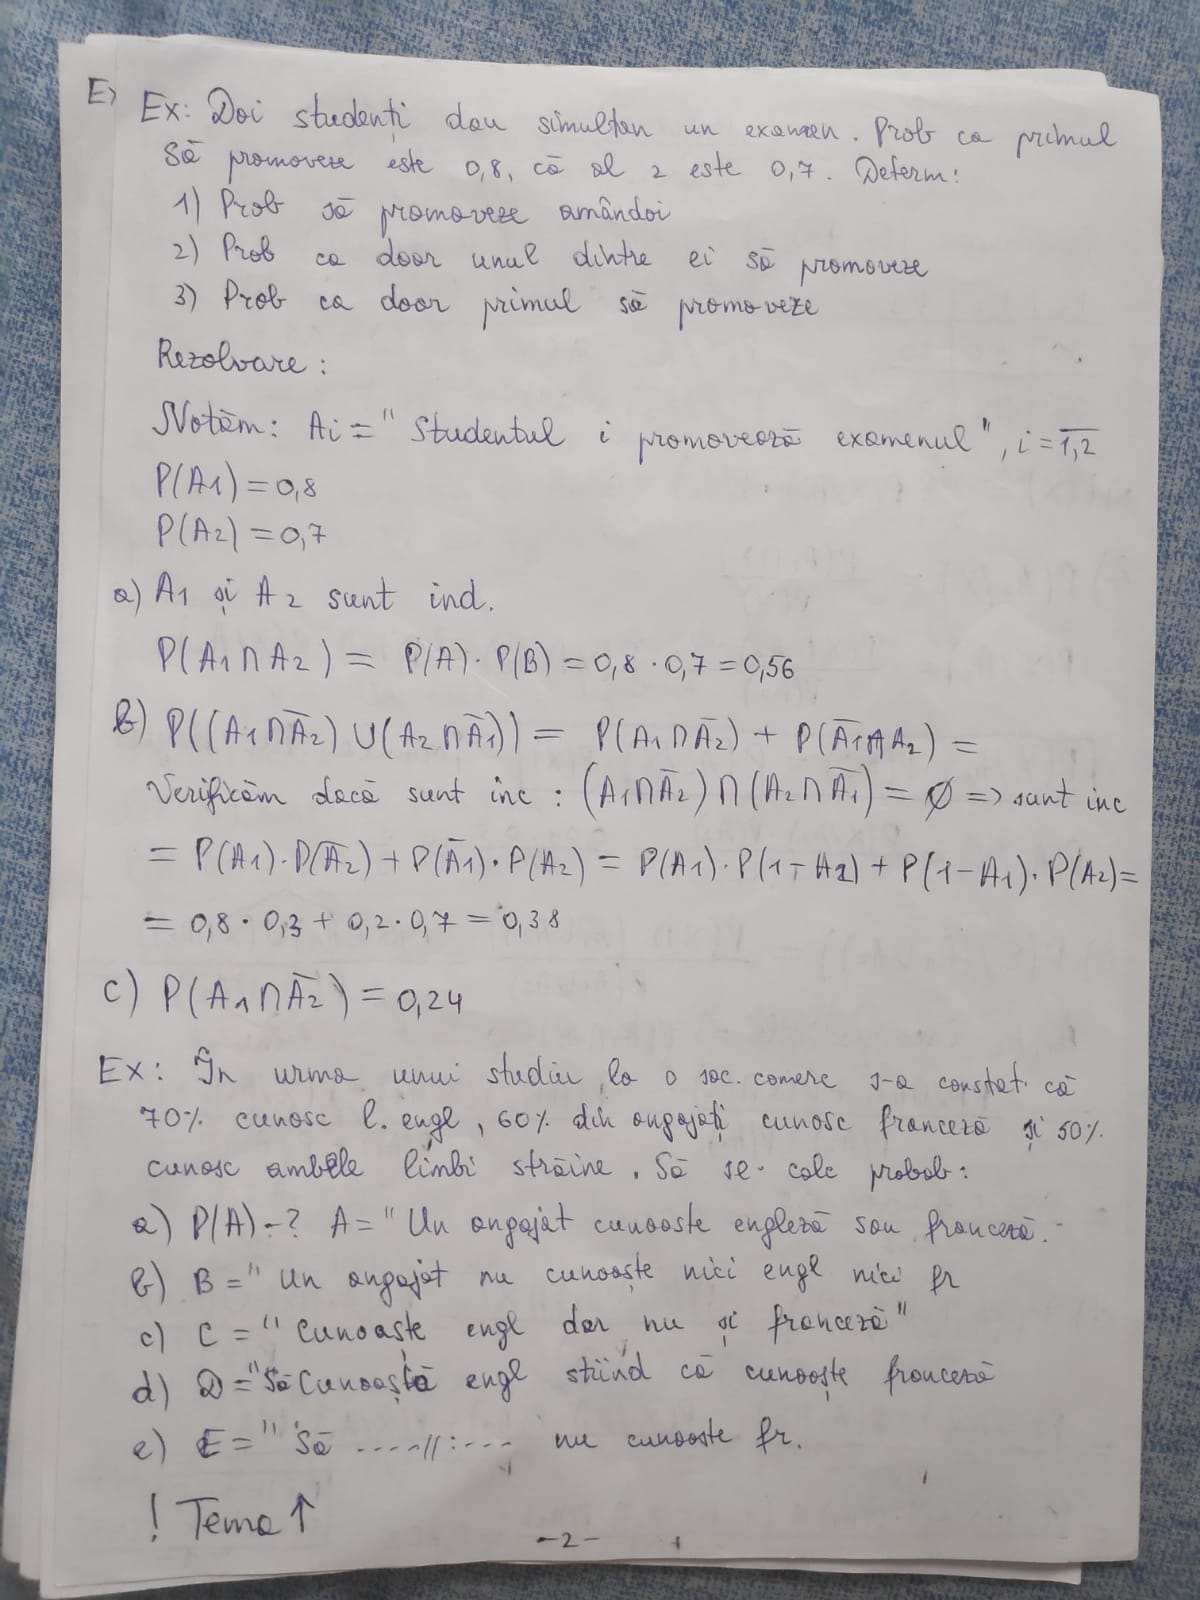 E)
Ex: Doi studenți dau simultan un examen. Prob ca primul
Să promoveze este 0,8, că al 2 este 0,7. Determ:
1) Prob să promoveze amândoi
2) Prob ca doar unul dintre ei să promoveze
3) Prob ca doar primul să promoveze
Rezolvare:
Notăm: Ai = "Studentul i promovează examenul", i = 1,2
P(A1) = 0,8
P(A2) = 0,7
a) A1 și A2 sunt ind.
P(A1 ∩ A2) = P(A) · P(B) = 0,8 · 0,7 = 0,56
b) P((A1 ∩ A̅2) ∪ (A2 ∩ A̅1)) = P(A1 ∩ A̅2) + P(A̅1 ∩ A2) =
Verificăm dacă sunt inc : (A1 ∩ A̅2) ∩ (A2 ∩ A̅1) = ∅ => sunt inc
= P(A1) · P(A̅2) + P(A̅1) · P(A2) = P(A1) · P(1 - A2) + P(1 - A1) · P(A2) =
= 0,8 · 0,3 + 0,2 · 0,7 = 0,38
c) P(A1 ∩ A̅2) = 0,24
Ex: În urma unui studiu la o soc. comerc s-a constat că
70% cunosc l. engl, 60% din angajați cunosc franceză și 50%
cunosc ambele limbi străine. Să se calc probab:
a) P(A) - ? A = "Un angajat cunoaste engleză sau franceză.
b) B = " Un angajat nu cunoaște nici engl nici fr
c) C = "Cunoaște engl dar nu și franceză"
d) D = "Să Cunoască engl stiind că cunoaște franceză
e) E = " Să ----//:--- nu cunoaste fr.
! Tema ↑
-2-